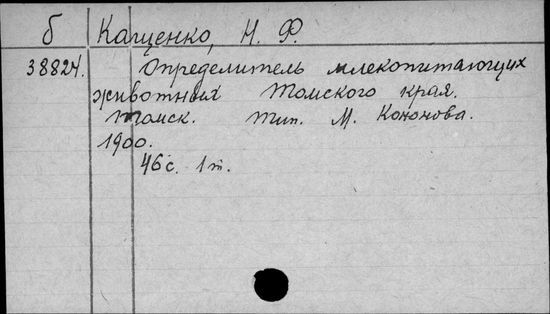 б Кащенко, Н. Ф.
38824. Определитель млекопитающих
животных Томского края.
Томск. Тип. М. Кононова.
1900.
46 с. 1 т.